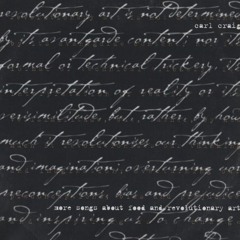 revolutionary art is not determined
carl craig
by its avantgarde content; nor its
formal or technical trickery, its
interpretation of reality or its
verisimilitude, but, rather, by how
much it revolutionises our thinking
and imagination; overturning our
preconceptions, bias and prejudice
more songs about food and revolutionary art
and inspiring us to change